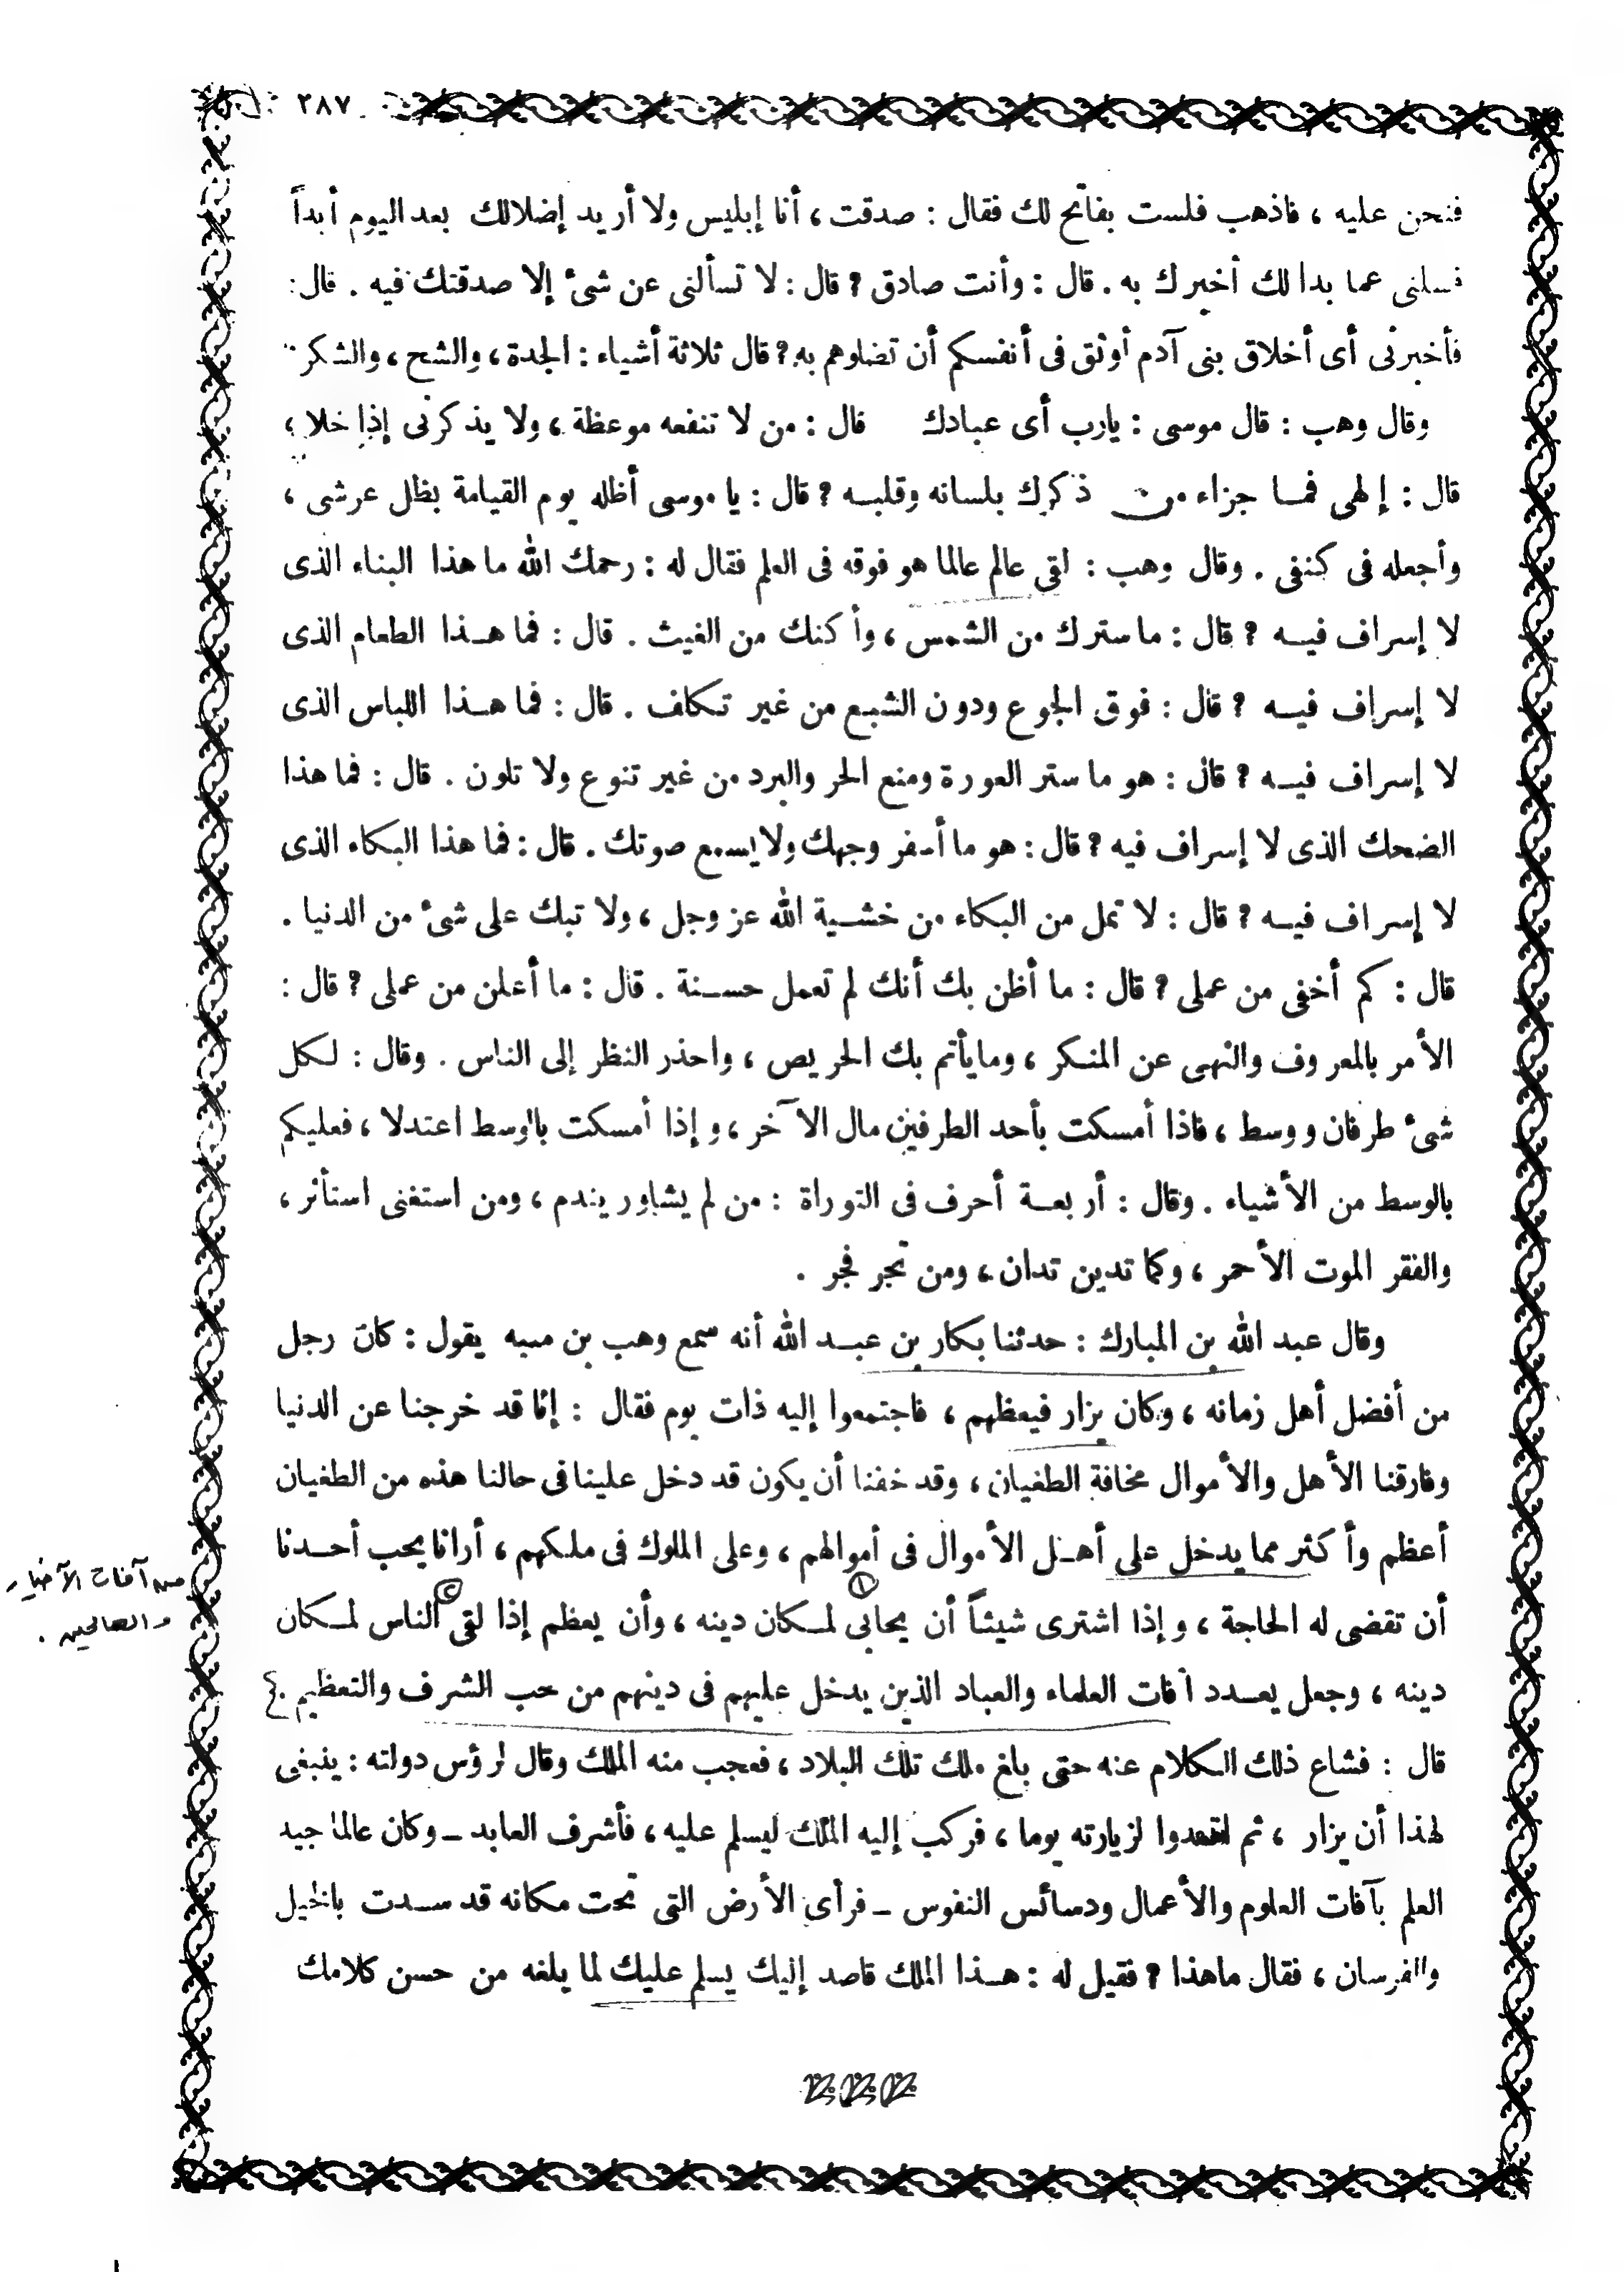 ٢٨٧
فنحن عليه ، فاذهب فلست بفاتح لك فقال : صدقت ، أنا إبليس ولا أريد إضلالك بعد اليوم أبداً
فسلنى عما بدا لك أخبرك به . قال : وأنت صادق ؟ قال : لا تسألنى عن شىء إلا صدقتك فيه . قال :
فأخبرنى أى أخلاق بنى آدم أوثق فى أنفسكم أن تضلوهم به ؟ قال ثلاثة أشياء : الحدة ، والشح ، والشكر
وقال وهب : قال موسى : يارب أى عبادك قال : من لا تنفعه موعظة ، ولا يذكرنى إذا خلا ،
قال : إلهى فما جزاء من ذكرك بلسانه وقلبه ؟ قال : يا موسى أظله يوم القيامة بظل عرشى ،
وأجعله فى كنفى . وقال وهب : لقى عالم عالما هو فوقه فى العلم فقال له : رحمك الله ما هذا البناء الذى
لا إسراف فيه ؟ قال : ما سترك من الشمس ، وأكنك من الغيث . قال : فما هذا الطعام الذى
لا إسراف فيه ؟ قال : فوق الجوع ودون الشبع من غير تكلف . قال : فما هذا اللباس الذى
لا إسراف فيه ؟ قال : هو ما ستر العورة ومنع الحر والبرد من غير تنوع ولا تلون . قال : فما هذا
الضحك الذى لا إسراف فيه ؟ قال : هو ما أسفر وجهك ولا يسمع صوتك . قال : فما هذا البكاء الذى
لا إسراف فيه ؟ قال : لا تمل من البكاء من خشية الله عز وجل ، ولا تبك على شىء من الدنيا .
قال : كم أخفى من عملى ؟ قال : ما أظن بك أنك لم تعمل حسنة . قال : ما أعلن من عملى ؟ قال :
الأمر بالمعروف والنهى عن المنكر ، وما يأتم بك الحريص ، واحذر النظر إلى الناس . وقال : لكل
شىء طرفان ووسط ، فاذا أمسكت بأحد الطرفين مال الآخر ، وإذا أمسكت بالوسط اعتدلا ، فعليكم
بالوسط من الأشياء . وقال : أربعة أحرف فى التوراة : من لم يشاور يندم ، ومن استغنى استأثر ،
والفقر الموت الأحمر ، وكما تدين تدان ، ومن تجر فجر .
وقال عبد الله بن المبارك : حدثنا بكار بن عبد الله أنه سمع وهب بن منبه يقول : كان رجل
من أفضل أهل زمانه ، وكان يزار فيعظهم ، فاجتمعوا إليه ذات يوم فقال : إنا قد خرجنا عن الدنيا
وفارقنا الأهل والأموال مخافة الطغيان ، وقد خفنا أن يكون قد دخل علينا فى حالنا هذه من الطغيان
أعظم وأكثر مما يدخل على أهل الأموال فى أموالهم ، وعلى الملوك فى ملكهم ، أرانا يحب أحدنا
أن تقضى له الحاجة ، وإذا اشترى شيئاً أن يحابى لمكان دينه ، وأن يعظم إذا لقى الناس لمكان
دينه ، وجعل يعدد آفات العلماء والعباد الذين يدخل عليهم فى دينهم من حب الشرف والتعظيم .
قال : فشاع ذلك الكلام عنه حتى بلغ ملك تلك البلاد ، فعجب منه الملك وقال لرؤس دولته : ينبغى
لهذا أن يزار ، ثم اتعدوا لزيارته يوما ، فركب إليه الملك ليسلم عليه ، فأشرف العابد ــ وكان عالما جيد
العلم بآفات العلوم والأعمال ودسائس النفوس ــ فرأى الأرض التى تحت مكانه قد سدت بالخيل
والفرسان ، فقال ماهذا ؟ فقيل له : هذا الملك قاصد إليك يسلم عليك لما يلغه من حسن كلامك
من آفات الأخيار
والصالحين .